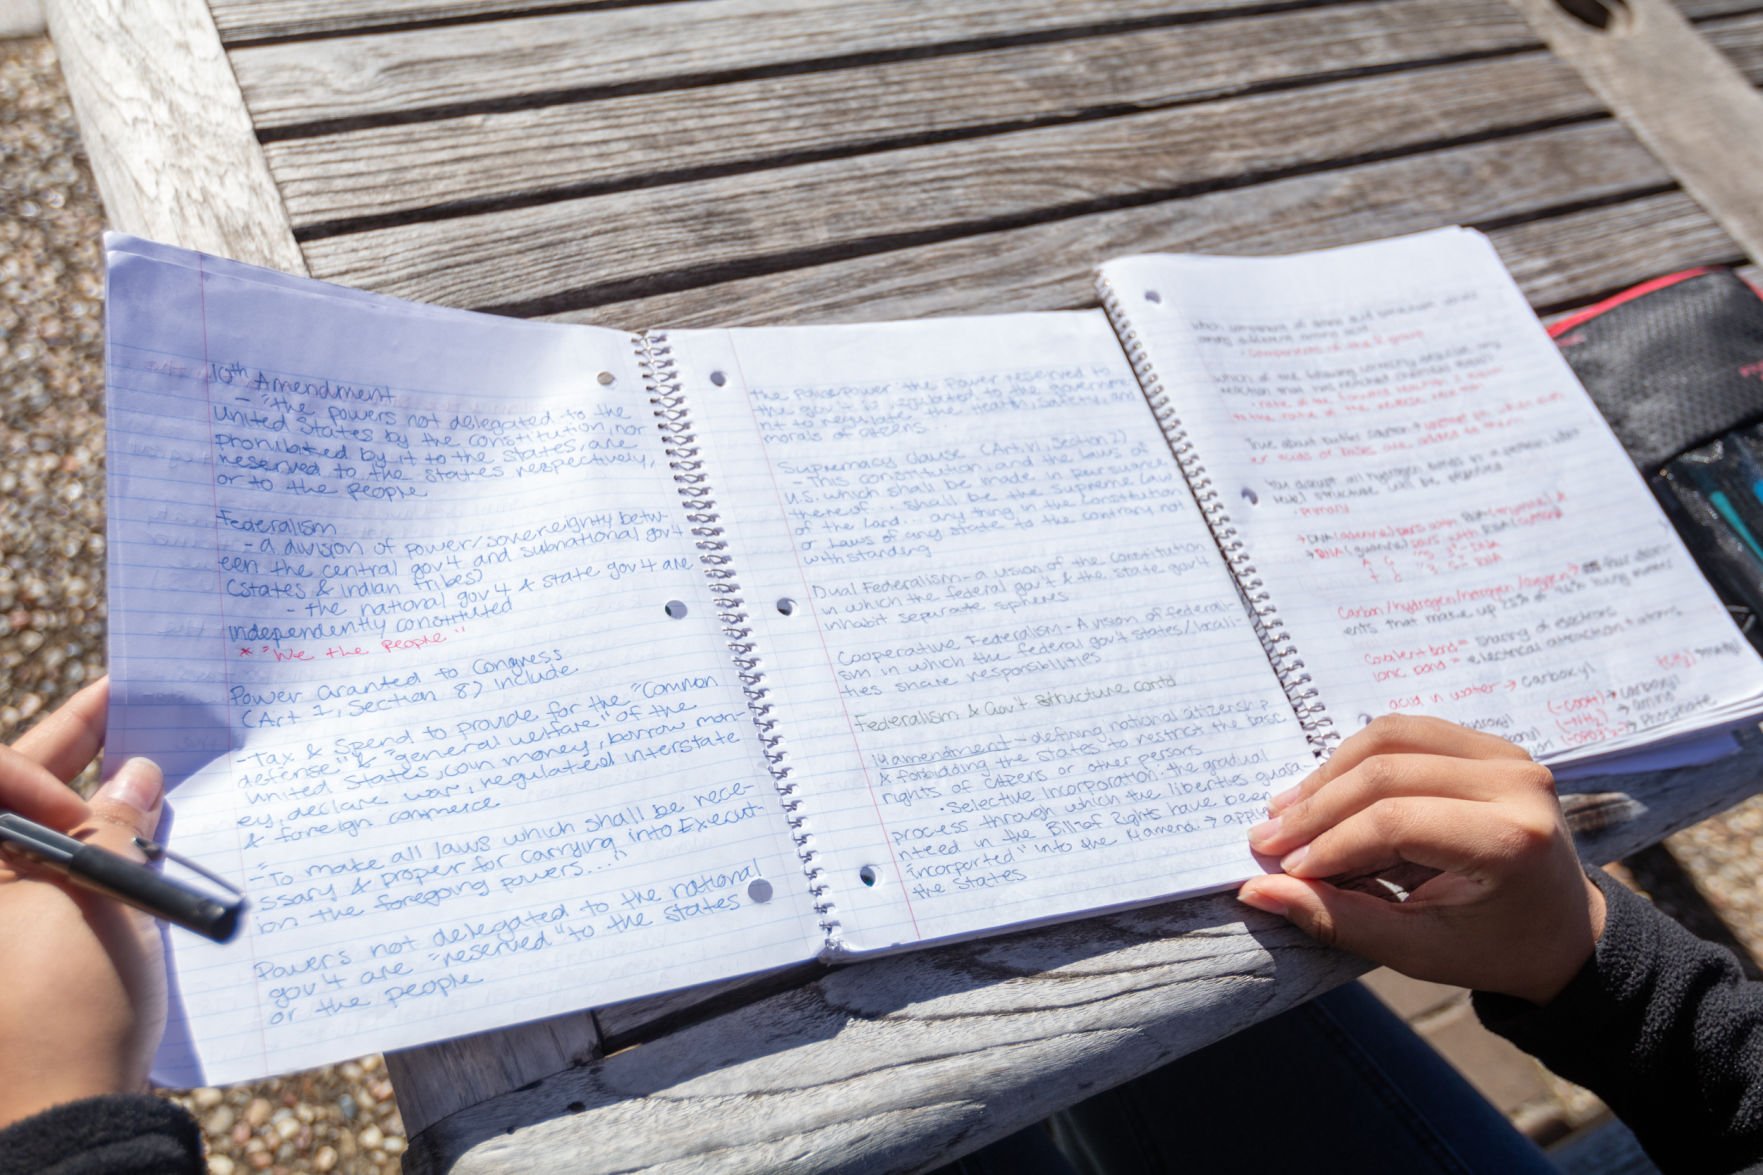 10th Amendment
- "the powers not delegated to the
United States by the constitution, nor
prohibited by it to the states, are
reserved to the states respectively,
or to the people
Federalism
- a division of power/sovereignty betw-
een the central gov't and subnational gov't
(states & Indian Tribes)
- the national gov't & state gov't are
independently constituted
* "We the People"
Power Granted to Congress
(Art 1, Section 8) include
- Tax & Spend to provide for the "Common
defense" & "general welfare" of the
United States, coin money, borrow mon-
ey, declare war, regulated interstate
& foreign commerce
- To make all laws which shall be nece-
ssary & proper for carrying into Execut-
ion the foregoing powers..."
Powers not delegated to the national
gov't are "reserved" to the states
or the people
the Police Power: the power reserved to
the gov't is regulated to the governme-
nt to regulate the health, safety, and
morals of citizens...
Supremacy Clause (Art. VI, Section 2)
- This constitution, and the laws of
U.S. which shall be made in pursuance
thereof... shall be the Supreme Law
of the land... any thing in the Constitution
or Laws of any state to the contrary not
withstanding
Dual Federalism - a vision of the constitution
in which the federal gov't & the state gov't
inhabit separate spheres
Cooperative Federalism - A vision of federali-
sm in which the federal gov't states/locali-
ties share responsibilities
Federalism & Gov't Structure cont'd
14 amendment - defining national citizenship
& forbidding the states to restrict the basic
rights of citizens or other persons
• Selective Incorporation: the gradual
process through which the liberties guara-
nteed in the Bill of Rights have been
incorported" into the 14 amend. → apply
the states
which component of amino acid
among different amino acid
• components of the R group
which of the following correctly
reaction that has reached
• rate of the forward reaction is equal
to the rate of the reverse
True about buffer solution
acids or bases are added to them
You disrupt all hydrogen bonds in a protein, what
level structure will be
• Primary
pairs with
pairs with
Carbon/hydrogen/nitrogen/oxygen →
ents that make up
Covalent bond = sharing of electrons
Ionic bond = electrical attraction
acid in water → Carboxyl
(-COOH) → carboxyl
(-NH2) → amino
→ Phosphate